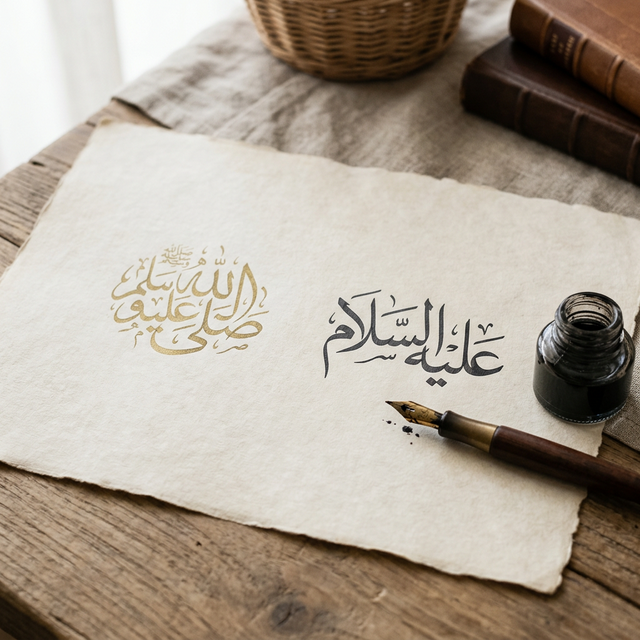 عليه السلام
صلى الله عليه وسلم